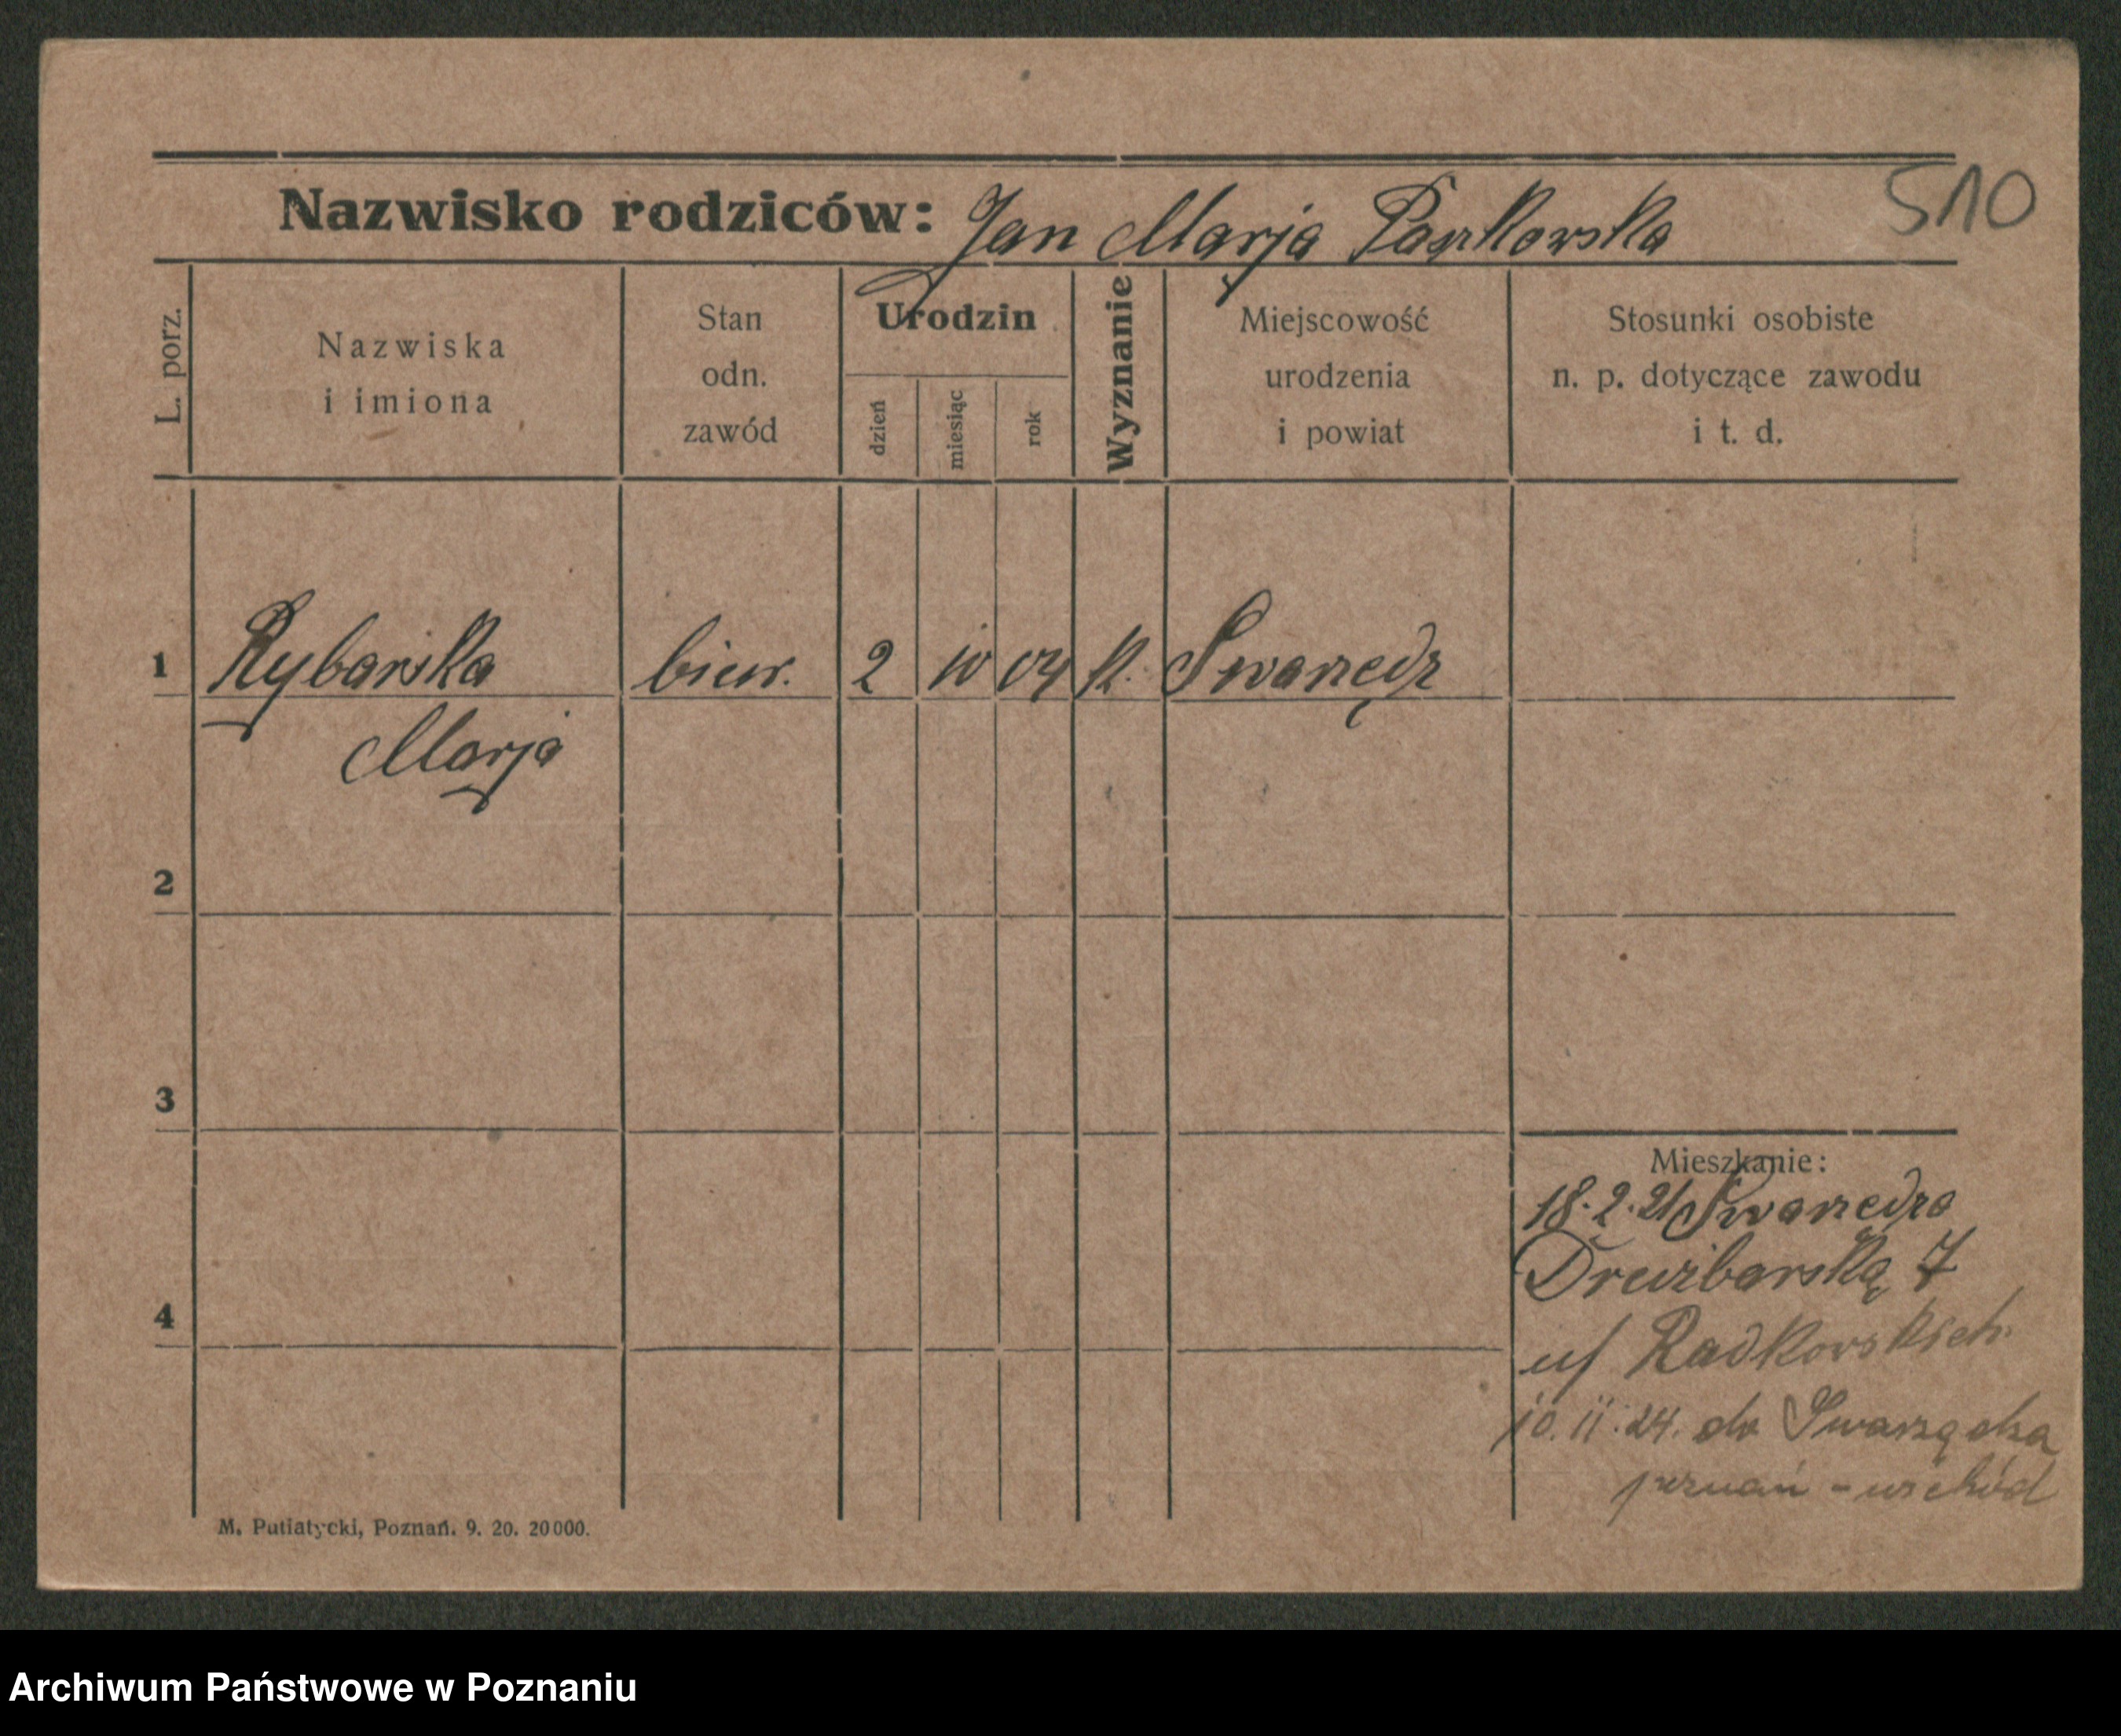 510
Nazwisko rodziców: Jan Marja Paszkowska
L. porz.
Nazwiska
i imiona
Stan
odn.
zawód
Urodzin
dzień
miesiąc
rok
Wyznanie
Miejscowość
urodzenia
i powiat
Stosunki osobiste
n. p. dotyczące zawodu
i t. d.
1 Rybarska 2 10 04 k. Swarzędz
Marja
2
3
4
Mieszkanie:
18.2.21 Swarzędza
7
u/ Radkowskich
10.11.24. do Swarzędza
poznań - wschód
M. Putiatycki, Poznań. 9. 20. 20000.
Archiwum Państwowe w Poznaniu